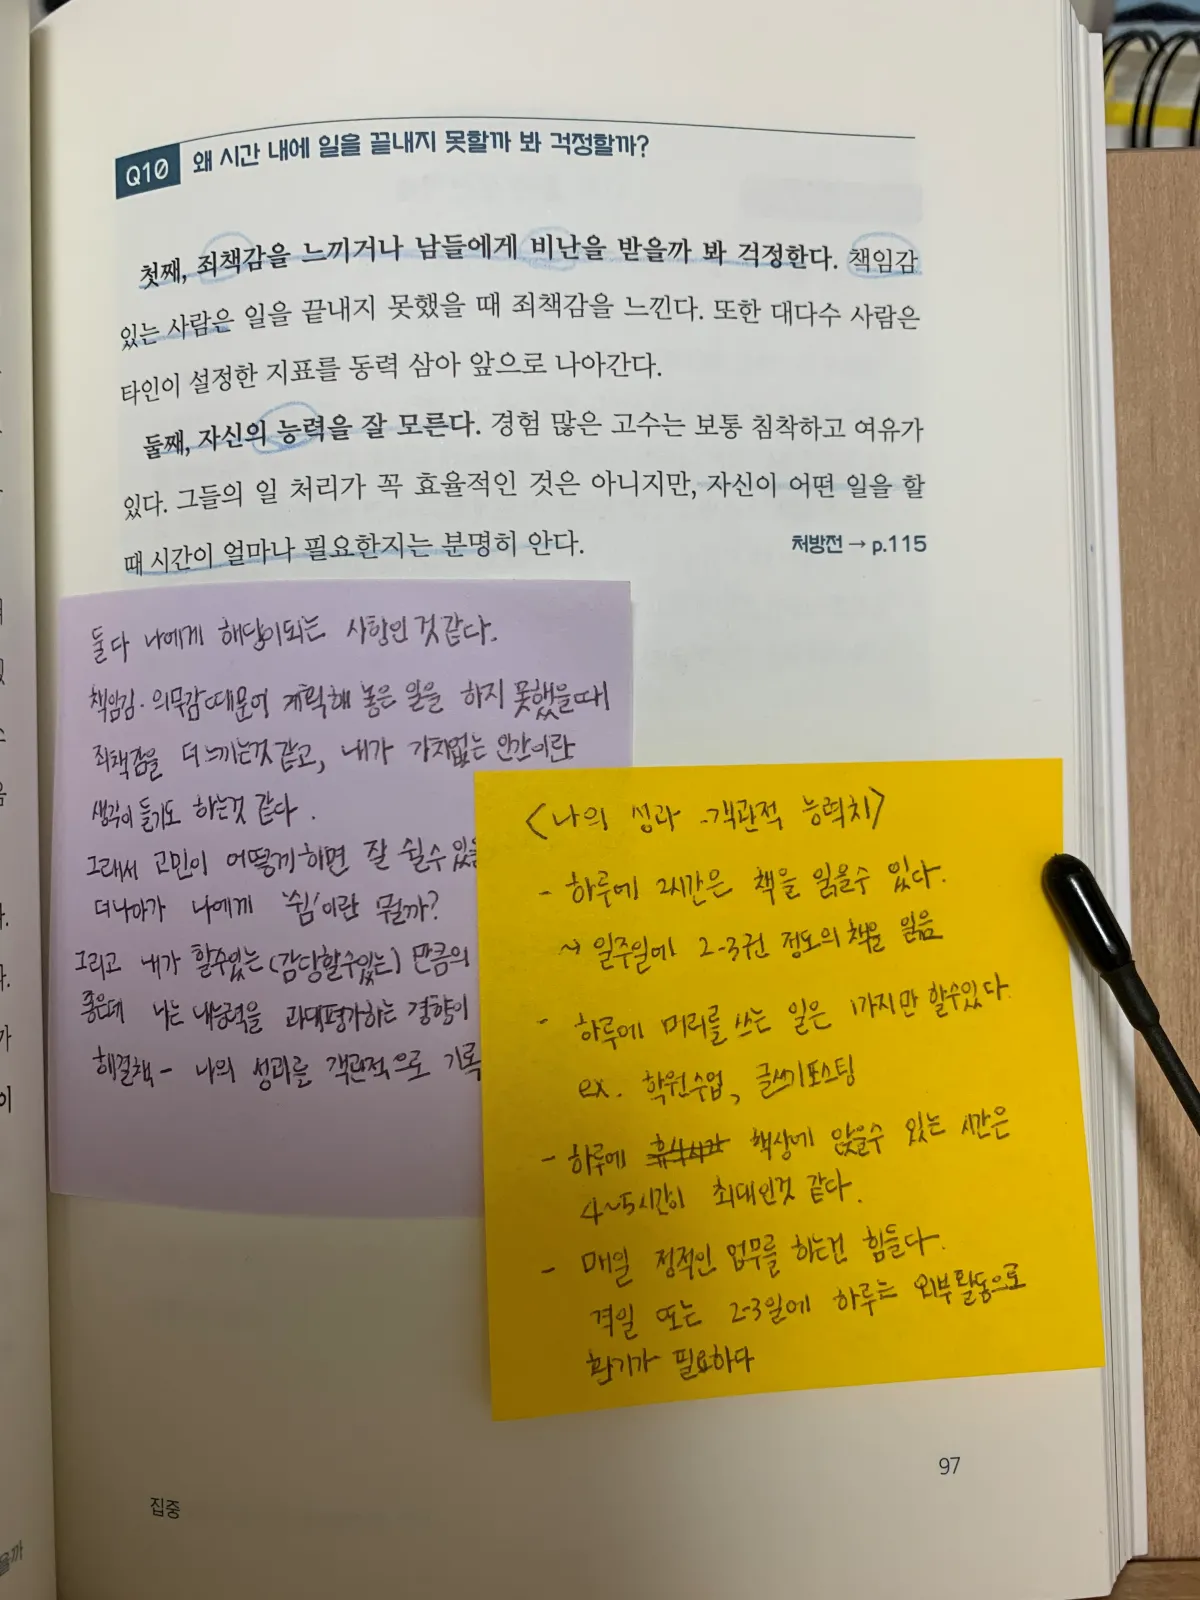 Q10 왜 시간 내에 일을 끝내지 못할까 봐 걱정할까?
첫째, 죄책감을 느끼거나 남들에게 비난을 받을까 봐 걱정한다. 책임감
있는 사람은 일을 끝내지 못했을 때 죄책감을 느낀다. 또한 대다수 사람은
타인이 설정한 지표를 동력 삼아 앞으로 나아간다.
둘째, 자신의 능력을 잘 모른다. 경험 많은 고수는 보통 침착하고 여유가
있다. 그들의 일 처리가 꼭 효율적인 것은 아니지만, 자신이 어떤 일을 할
때 시간이 얼마나 필요한지는 분명히 안다.
처방전 → p.115
둘다 나에게 해당이되는 사항인것같다.
책임감·의무감때문에 계획해 놓은 일을 하지 못했을때
죄책감을 더느끼는것같고, 내가 가치없는 인간이란
생각이 들기도 하는것 같다.
그래서 고민이 어떻게하면 잘 쉴수있을
더나아가 나에게 '쉼'이란 뭘까?
그리고 내가 할수있는(감당할수있는) 만큼의
좋은데 나는 내능력을 과대평가하는 경향이
해결책 - 나의 성과를 객관적으로 기록
<나의 성과 -객관적 능력치>
- 하루에 2시간은 책을 읽을수 있다.
~> 일주일에 2-3권 정도의 책을 읽음
- 하루에 머리를 쓰는 일은 1가지만 할수있다.
ex. 학원수업, 글쓰기포스팅
- 하루에 책상에 앉을수 있는 시간은
4~5시간이 최대인것 같다.
- 매일 정적인 업무를 하는건 힘들다.
격일 또는 2-3일에 하루는 외부활동으로
환기가 필요하다
97
집중